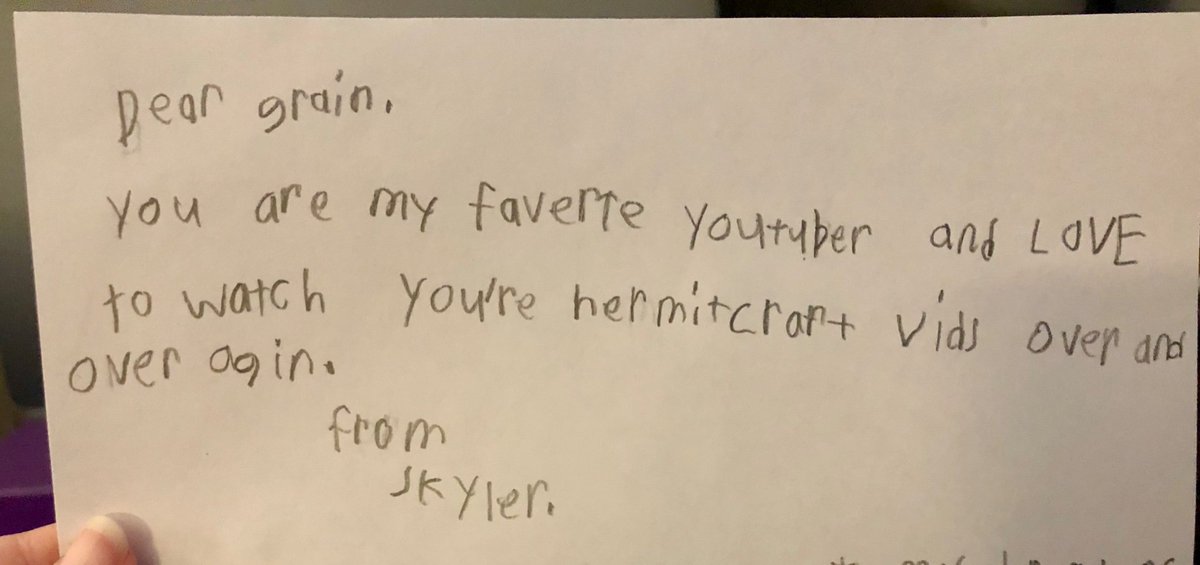 Dear grain.
you are my faverte youtuber and LOVE
to watch you're hermitcraft vids over and
over agin.
from
skyler.